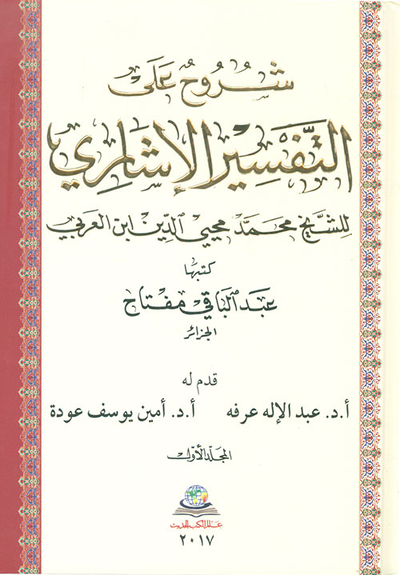 شُرُوحٌ عَلَى
التَّفْسِيْرِ الْإِشَارِي
لِلشَّيْخِ مُحَمَّد مُحْيِي الدِّين ابْن العَرَبي
كتبها
عَبْد الْبَاقي مِفْتَاح
الجزائر
قدم له
أ.د. عبد الإله عرفه أ.د. أمين يوسف عودة
المجلد الأول
عالم الكتب الحديث
٢٠١٧